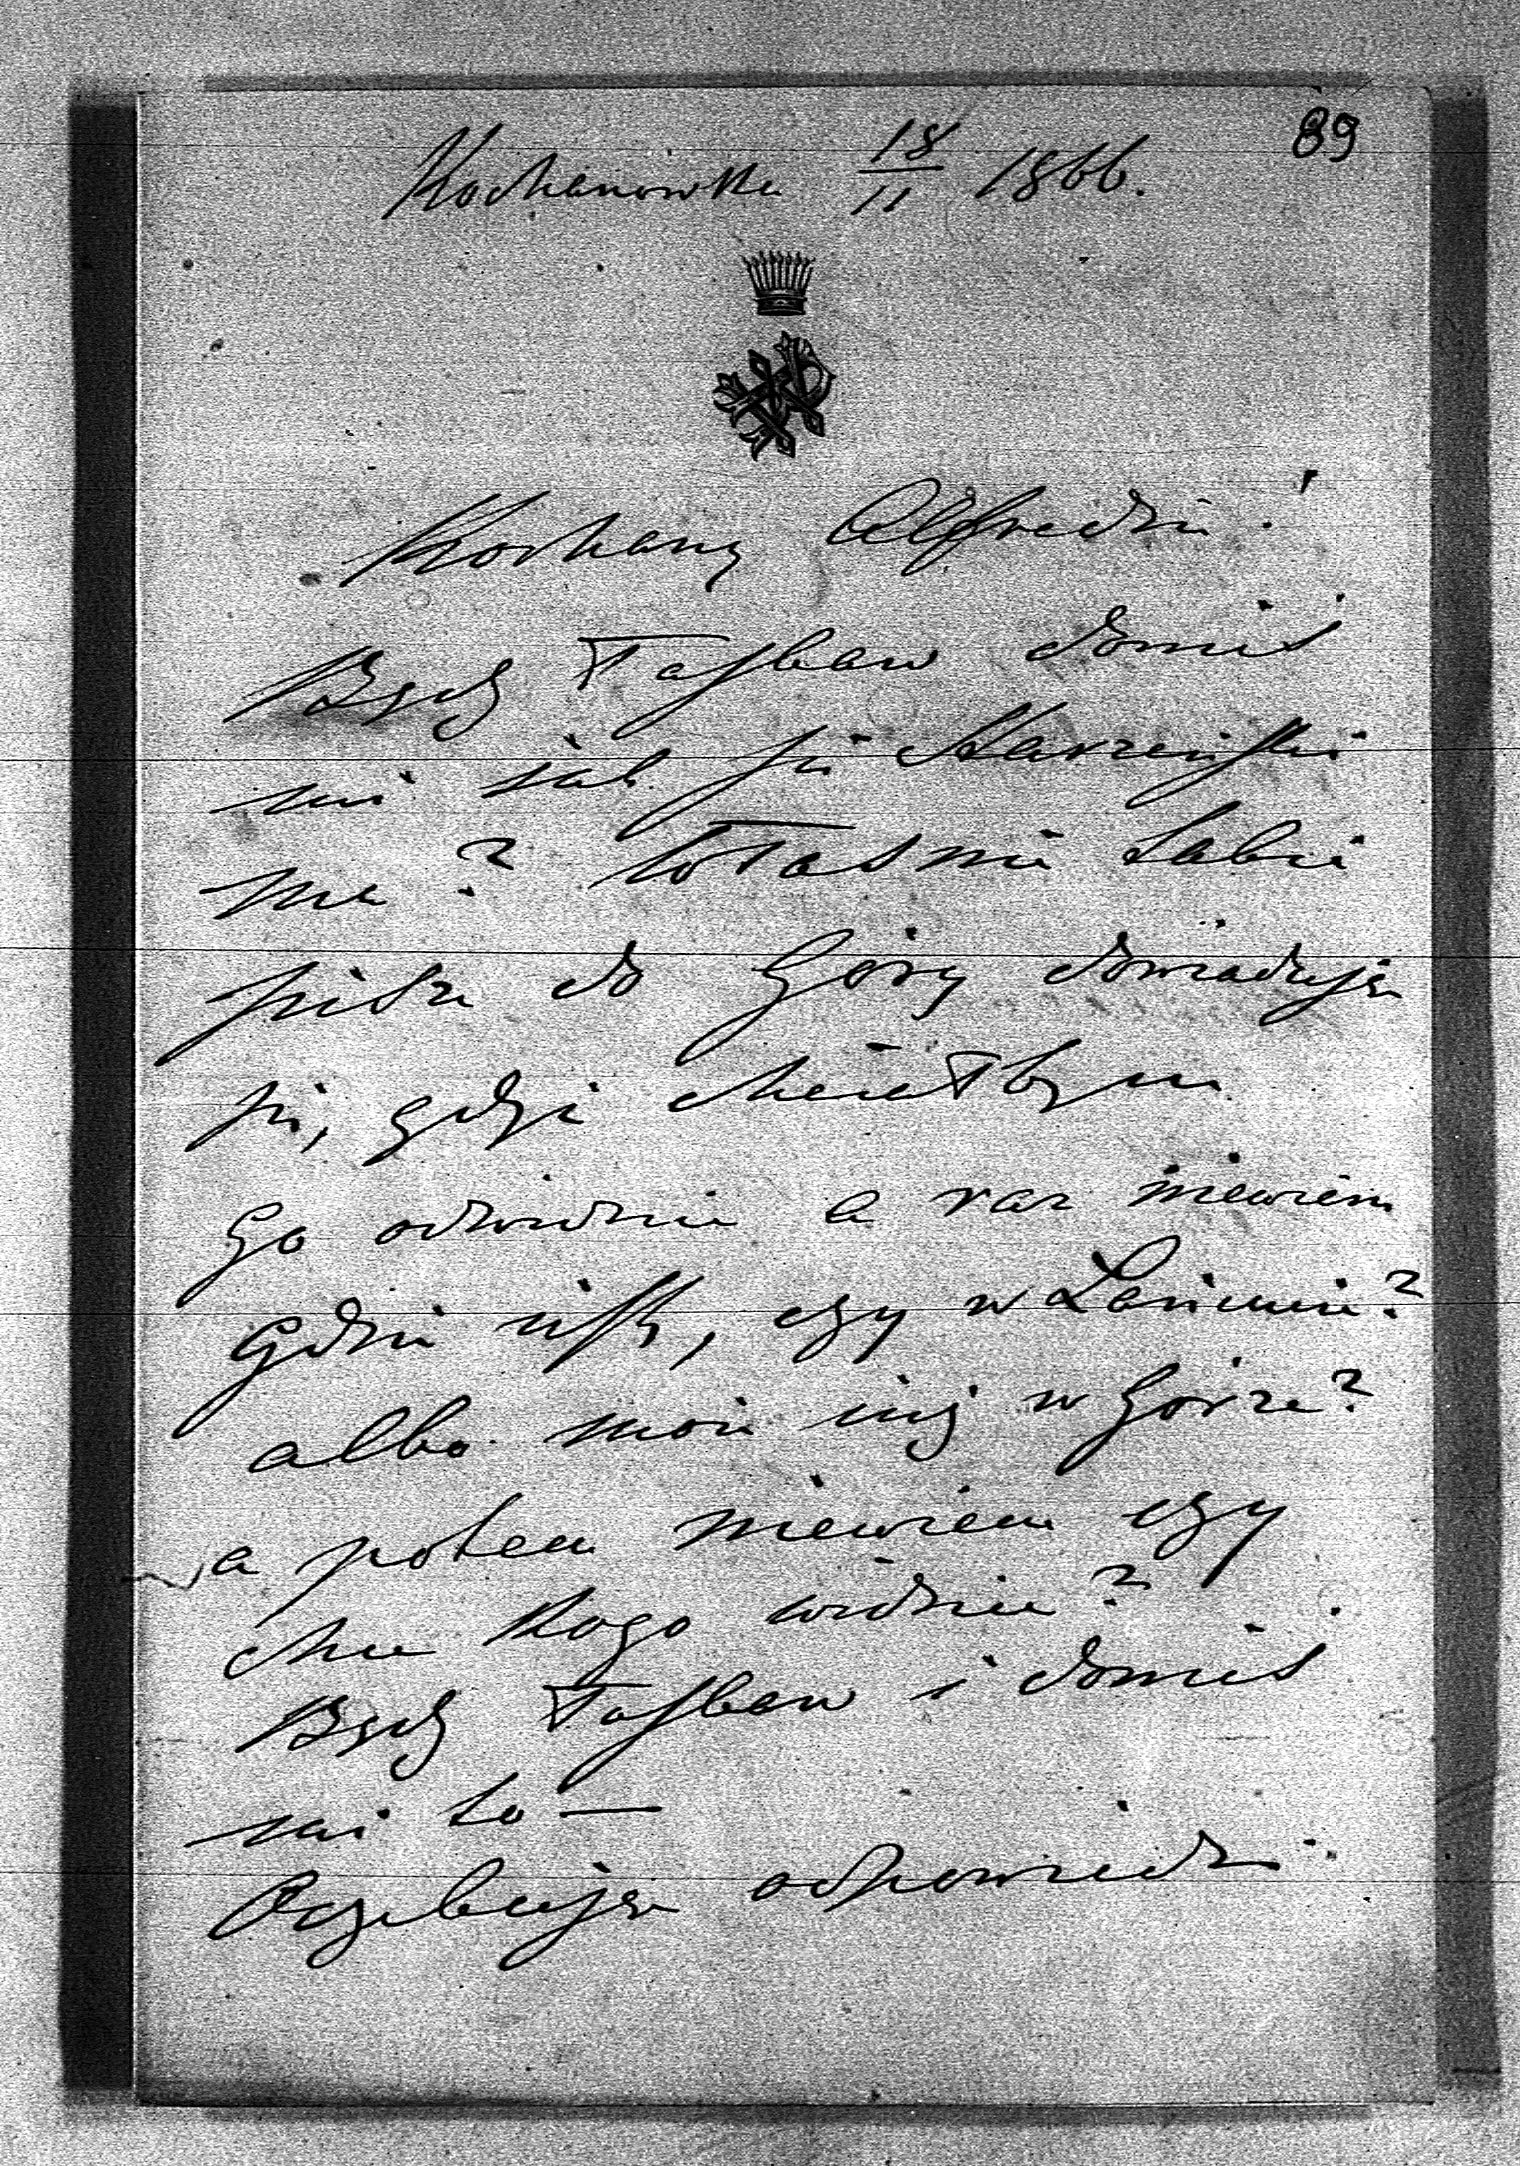 89
Kochanowka 18/11 1866.
Kochany Alfredzie!
Bądź łaskaw donieś
mi jak się Starzeński
ma? Własnie Labie
pisze do Góry dowiaduje
się, gdyż chciałbym
go odwidzić a raz niewiem
gdzie jest, czy w Łańcucie?
albo może jej w Górze?
a potem niewiem czy
chce kogo widzieć?
Bądź łaskaw i donieś
mi to —
Oczekuje odpowiedzi